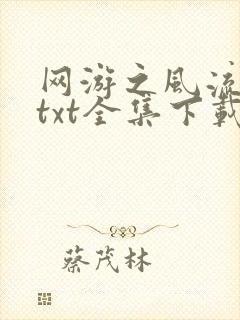 网游之风流
txt全集下载
蔡茂林